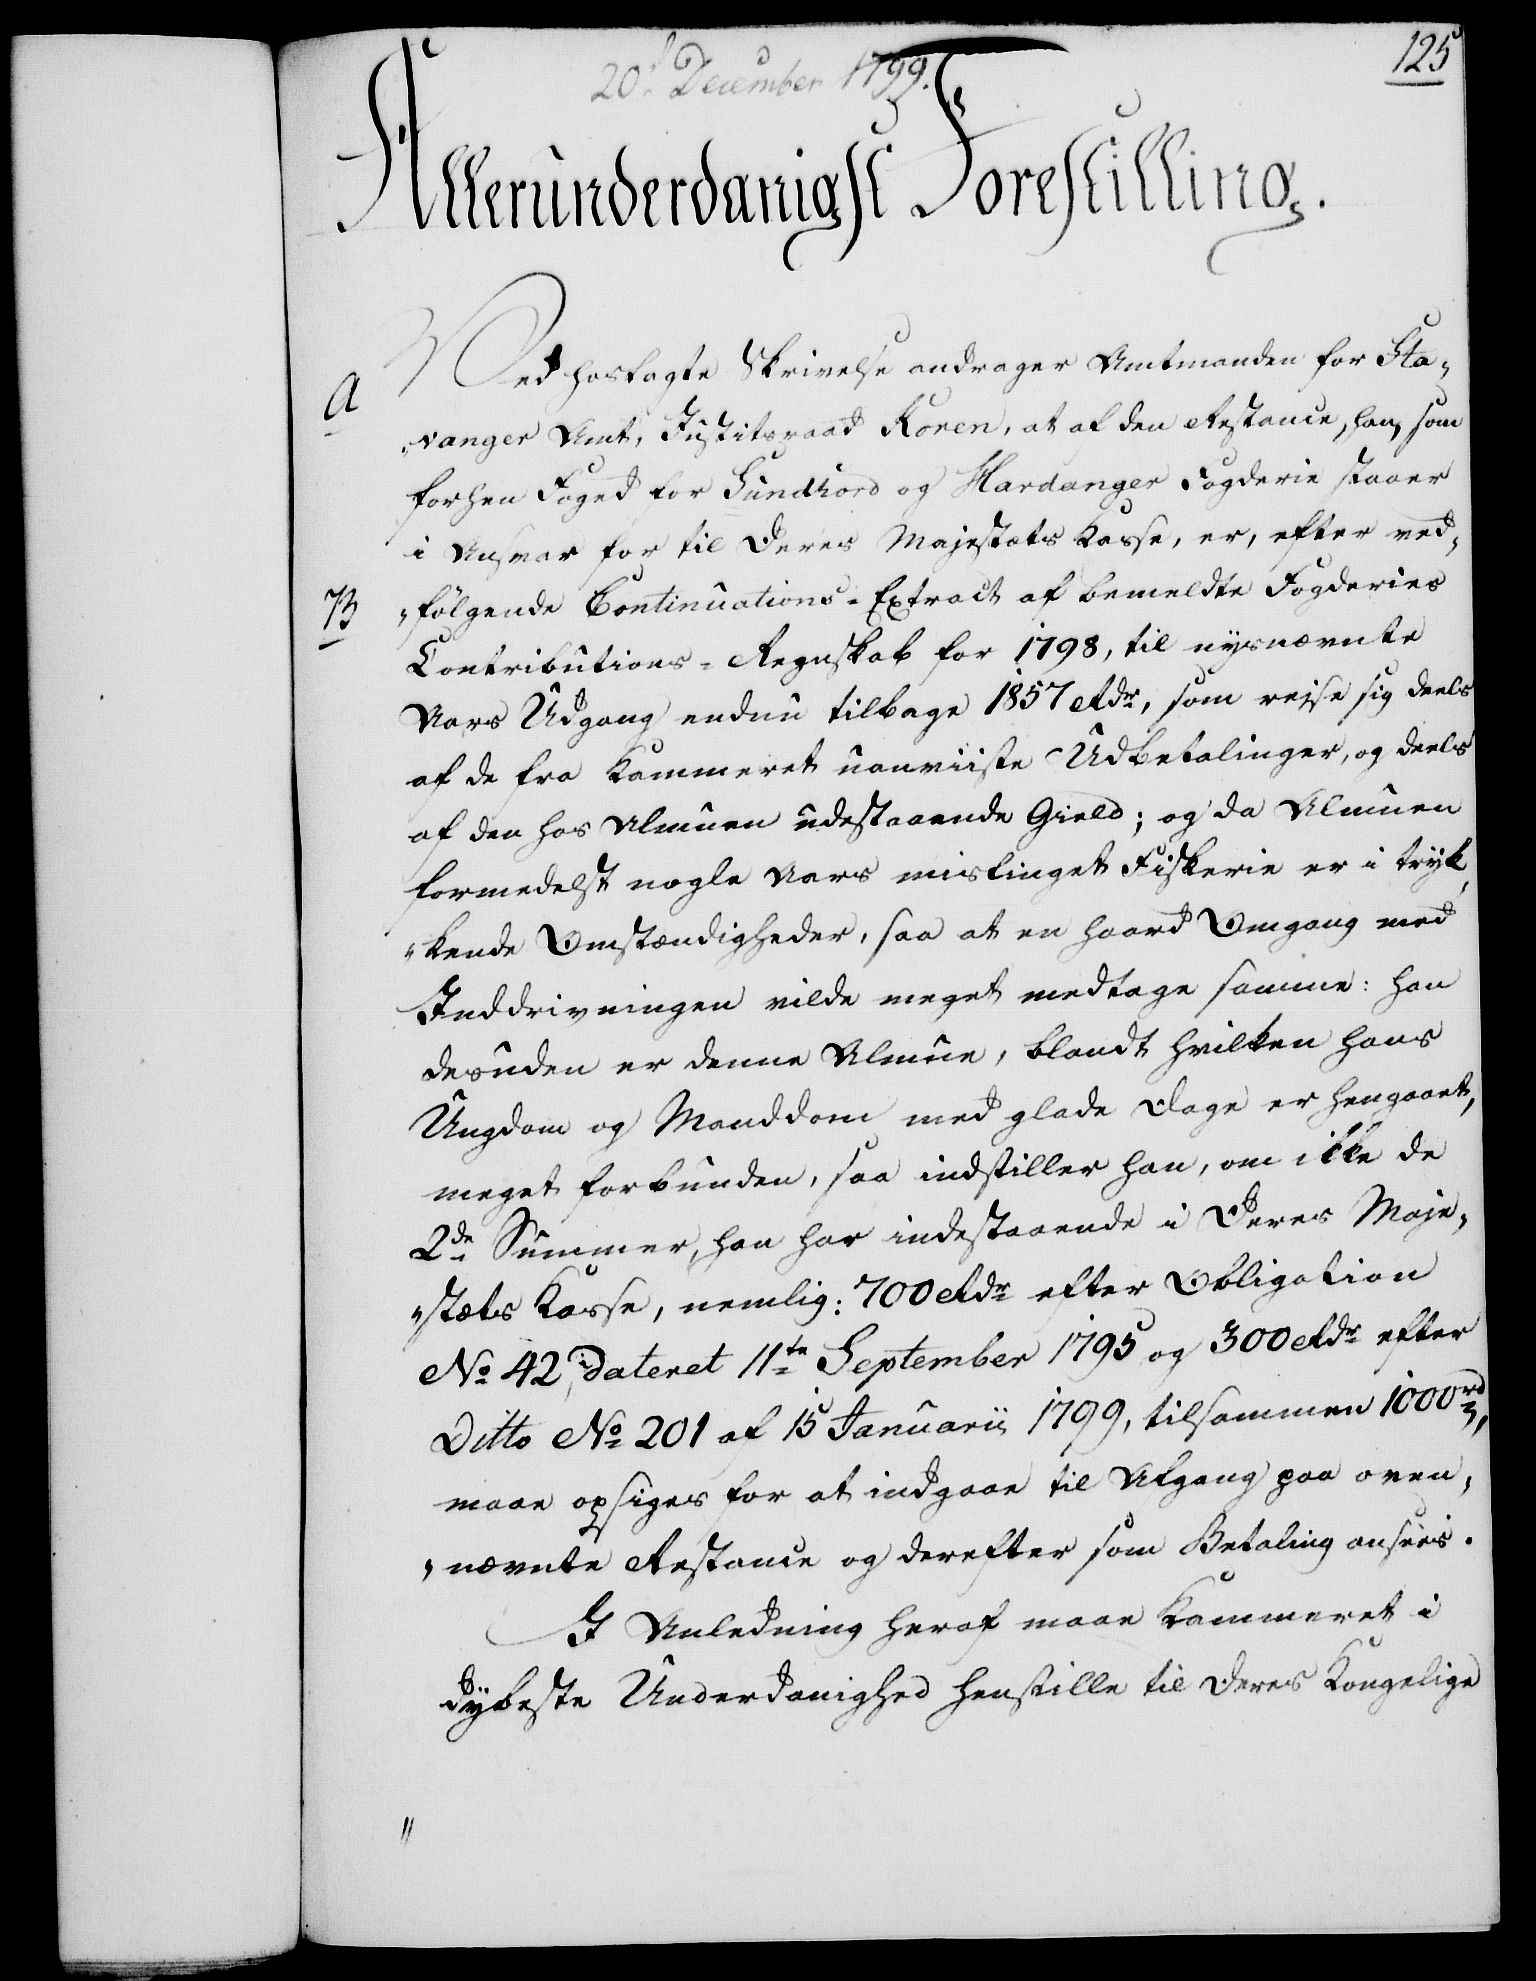 20d December 1799.
125
Allerunderdanigst Forestilling.
A
Ved hoslagte Skrivelse andrager Amtmanden for Sta-
vanger Amt, Justitsraad Koren, at af den Restance, han, som
forhen Foged for Sundhord og Hardanger Fogderie staaer
i Ansvar for til Deres Majestæts Kasse, er, efter ved-
B
følgende Continuations-Extract af bemeldte Fogderies
Contributions-Regnskab for 1798, til nysnævnte
Aars Udgang endnu tilbage 1857 Rdr, som rejse sig deels
af de fra Kammeret uanviiste Udbetalinger, og deels
af den hos Almuen udestaaende Gield; og da Almuen
formedelst nogle Aars mislinget Fiskerie er i tryk-
kende Omstændigheder, saa at en haard Omgang med
Inddrivningen vilde meget medtage samme: han
desuden er denne Almue, blandt hvilken hans
Ungdom og Manddom med glade Dage er hengaaet,
meget forbunden, saa indstiller han, om ikke de
2de Summer, han har indestaaende i Deres Maje-
stæts Kasse, nemlig: 700 Rdr efter Obligation
No 42, dateret 11te September 1795 og 300 Rdr efter
Ditto No 201 af 15 Januarii 1799, tilsammen 1000 rd,
maae opsiges for at indgaae til Afgang paa oven-
nævnte Restance og derefter som Betaling ansees.
I Anledning heraf maae Kammeret i
dybeste Underdanighed henstille til Deres Kongelige